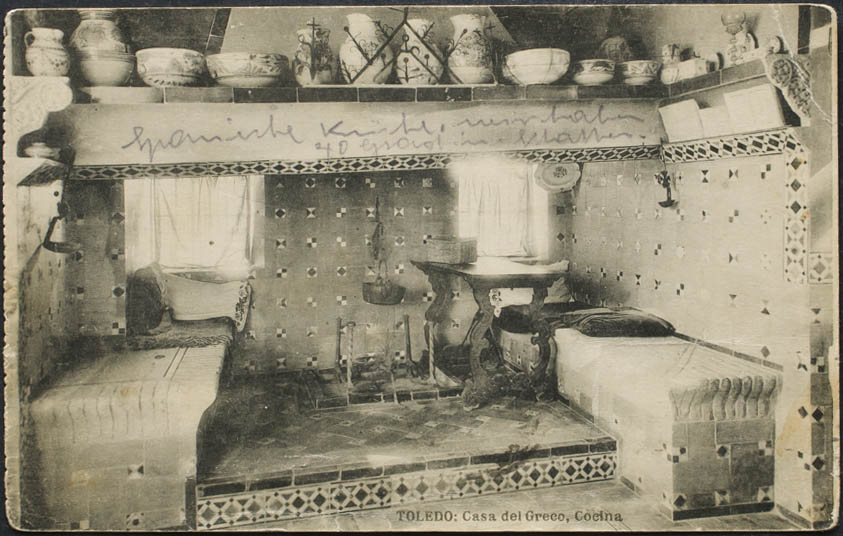 Spanische Küche,
40 Grad im Schatten.
TOLEDO: Casa del Greco, Cocina